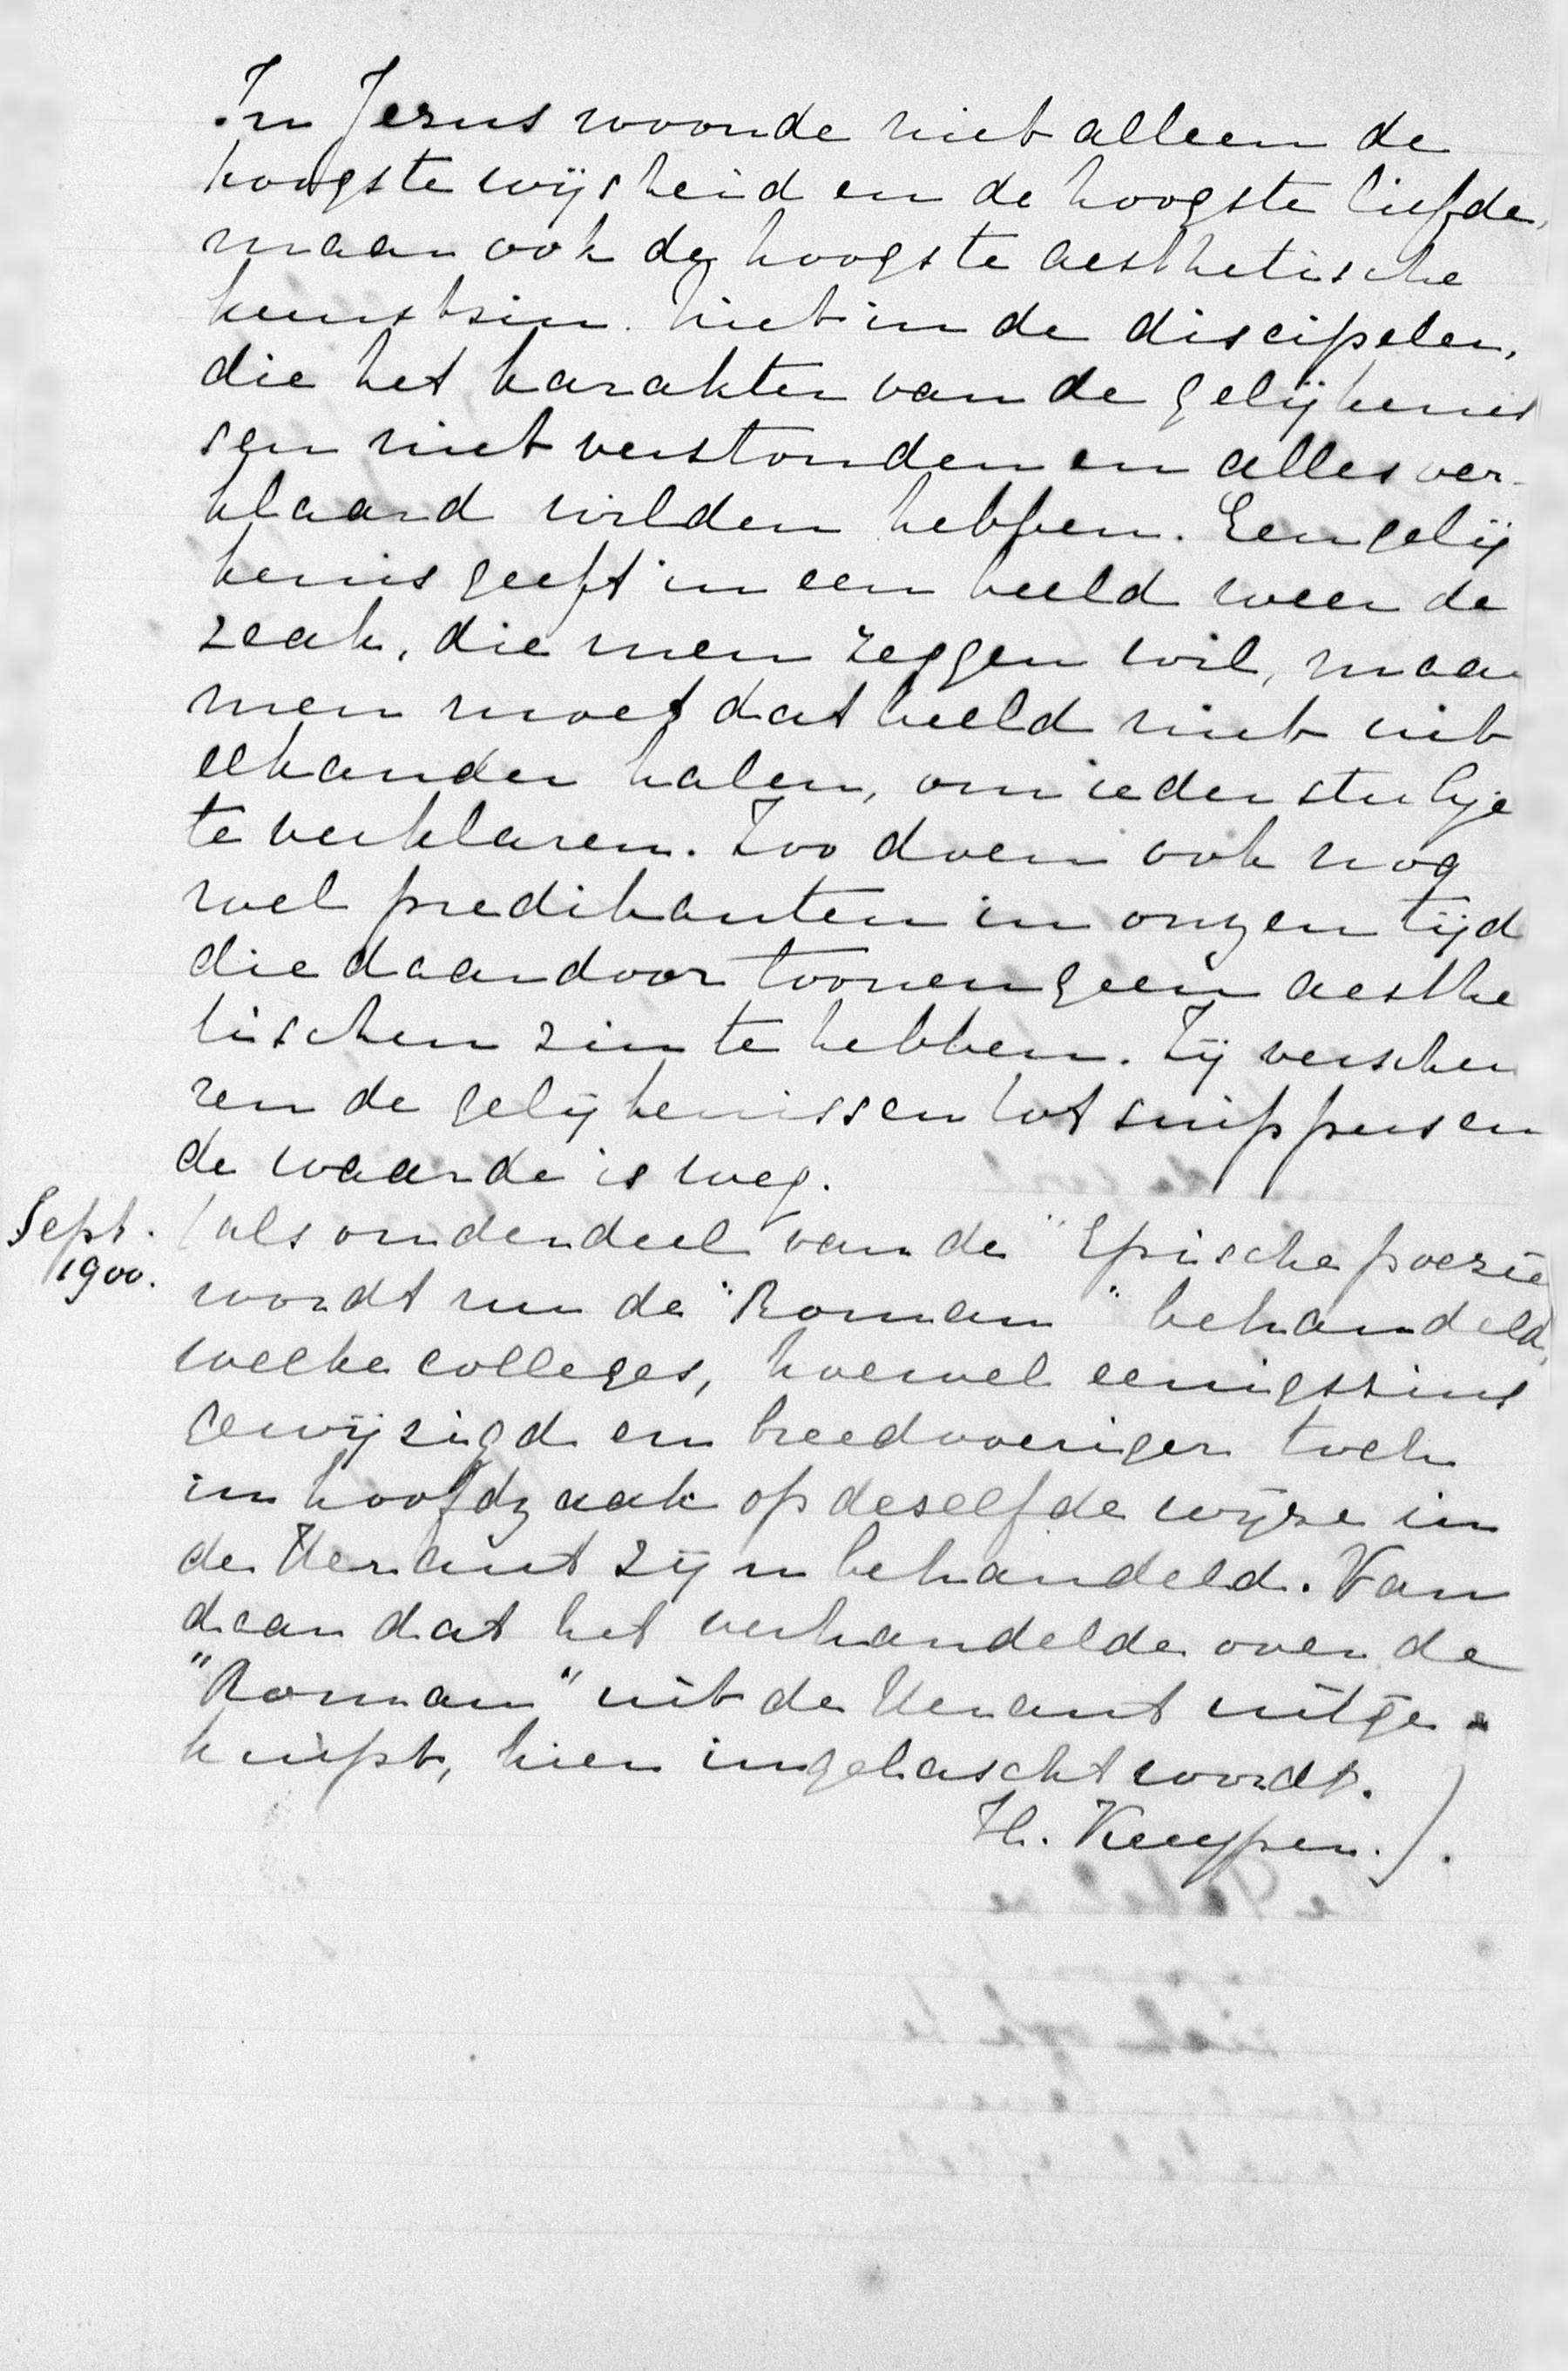 In Jezus woonde niet alleen de
hoogste wijsheid en de hoogste liefde,
maar ook de hoogste aesthetische
kunstzin. Niet in de discipelen,
die het karakter van de gelijkenis
sen niet verstonden en alles ver-
klaard wilden hebben. Een gelij
kenis geeft in een beeld weer de
zaak, die men zeggen wil, maar
men moet dat beeld niet uit
elkander halen, om ieder stukje
te verklaren. Zoo doen ook nog
wel predikanten in onzen tijd
die daardoor toonen geen aesthe
tischen zin te hebben. Zij verscheu
ren de gelijkenissen tot snippers en
de waarde is weg.
Sept.
1900.
(als onderdeel van de "Epische poezie
wordt nu de "Roman" behandeld,
welke colleges, hoewel eenigszins
gewijzigd en breedvoeriger toch
in hoofdzaak op deselfde wijze in
de Heraut zijn behandeld. Van
daar dat het verhandelde over de
"Roman" uit de Heraut uitge-
knipt, hier ingelascht wordt.
H. Kuyper.).